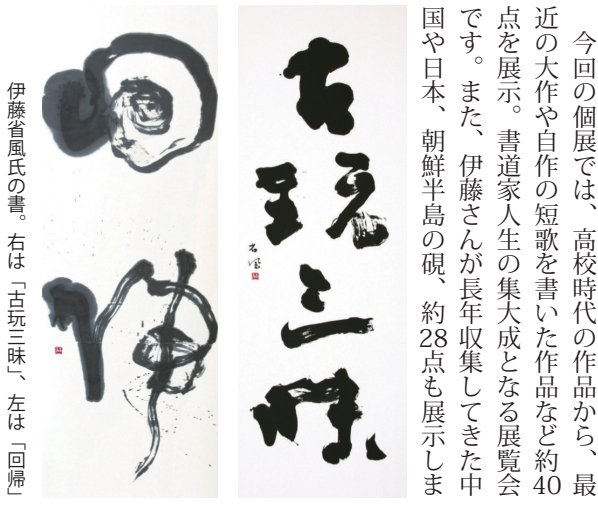 今回の個展では、高校時代の作品から、最
近の大作や自作の短歌を書いた作品など約40
点を展示。書道家人生の集大成となる展覧会
です。また、伊藤さんが長年収集してきた中
国や日本、朝鮮半島の硯、約28点も展示しま
古玩三昧
省風
回帰
伊藤省風氏の書。右は「古玩三昧」、左は「回帰」